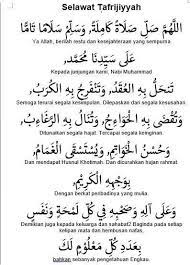 Selawat Tafrijiyyah
اللَّهُمَّ صَلِّ صَلَاةً كَامِلَةً، وَسَلِّمْ سَلَامًا تَامًّا
Ya Allah, berilah restu dan kesejahteraan yang sempurna
عَلَى سَيِّدِنَا مُحَمَّدٍ،
Kepada junjungan kami, Nabi Muhammad
تَنْحَلُّ بِهِ الْعُقَدُ، وَتَنْفَرِجُ بِهِ الْكُرَبُ
Semoga terurai segala kesimpulan. Dilepaskan dari segala kesusahan.
وَتُقْضَى بِهِ الْحَوَائِجُ، وَتُنَالُ بِهِ الرَّغَائِبُ
Ditunaikan segala hajat. Tercapai segala keinginan.
وَحُسْنُ الْخَوَاتِمِ، وَيُسْتَسْقَى الْغَمَامُ
Dan mendapat Husnul Khotimah. Dan dicurahkan hujan rahmat
بِوَجْهِهِ الْكَرِيْمِ
Dengan berkat peribadinya yang mulia.
وَعَلَى آلِهِ وَصَحْبِهِ فِي كُلِّ لَمْحَةٍ وَنَفَسٍ
Demikian juga kepada keluarga dan sahabat? Daripada pada setiap
kelipan mata dan hembusan nafas,
بِعَدَدِ كُلِّ مَعْلُوْمٍ لَكَ
bahkan sebanyak pengetahuan Engkau.